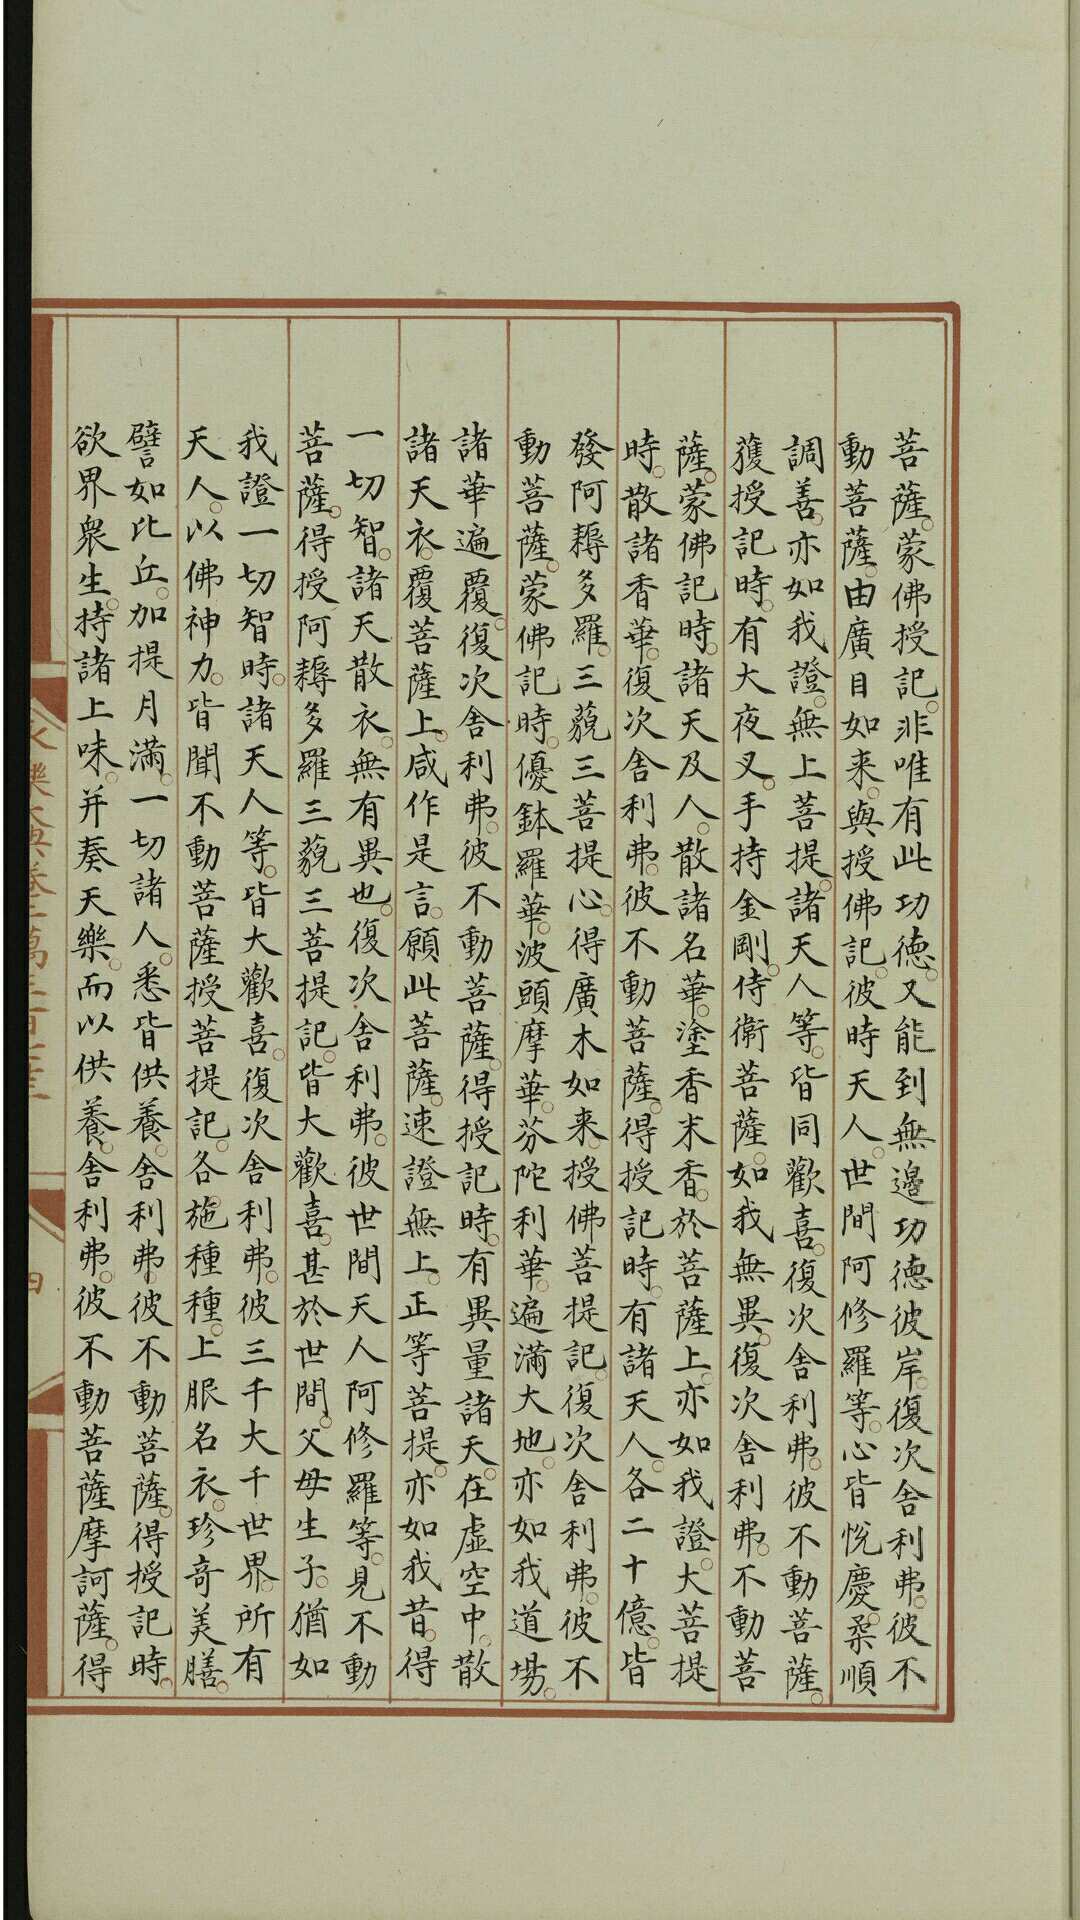 菩薩。蒙佛授記。非唯有此功德。又能到無邊功德彼岸。復次舍利弗。彼不
動菩薩。由廣目如来。與授佛記。彼時天人。世間阿修羅等。心皆悅慶。柔順
調善。亦如我證。無上菩提。諸天人等。皆同歡喜。復次舍利弗。彼不動菩薩。
獲授記時。有大夜叉。手持金剛。侍衛菩薩。如我無異。復次舍利弗。不動菩
薩。蒙佛記時。諸天及人。散諸名華。塗香末香。於菩薩上。亦如我證。大菩提
時。散諸香華。復次舍利弗。彼不動菩薩。得授記時。有諸天人。各二十億。皆
發阿耨多羅。三藐三菩提心。得廣木如来。授佛菩提記。復次舍利弗。彼不
動菩薩。蒙佛記時。優鉢羅華。波頭摩華。芬陀利華。遍滿大地。亦如我道場。
諸華遍覆。復次舍利弗。彼不動菩薩。得授記時。有異量諸天。在虛空中。散
諸天衣。覆菩薩上。咸作是言。願此菩薩。速證無上。正等菩提。亦如我昔。得
一切智。諸天散衣。無有異也。復次舍利弗。彼世間天人阿修羅等。見不動
菩薩。得授阿耨多羅三藐三菩提記。皆大歡喜。甚於世間。父母生子。猶如
我證一切智時。諸天人等。皆大歡喜。復次舍利弗。彼三千大千世界。所有
天人。以佛神力。皆聞不動菩薩授菩提記。各施種種。上服名衣。珍奇美膳。
譬如比丘。加提月滿。一切諸人。悉皆供養。舍利弗。彼不動菩薩。得授記時。
欲界衆生。持諸上味。并奏天樂。而以供養。舍利弗。彼不動菩薩摩訶薩。得